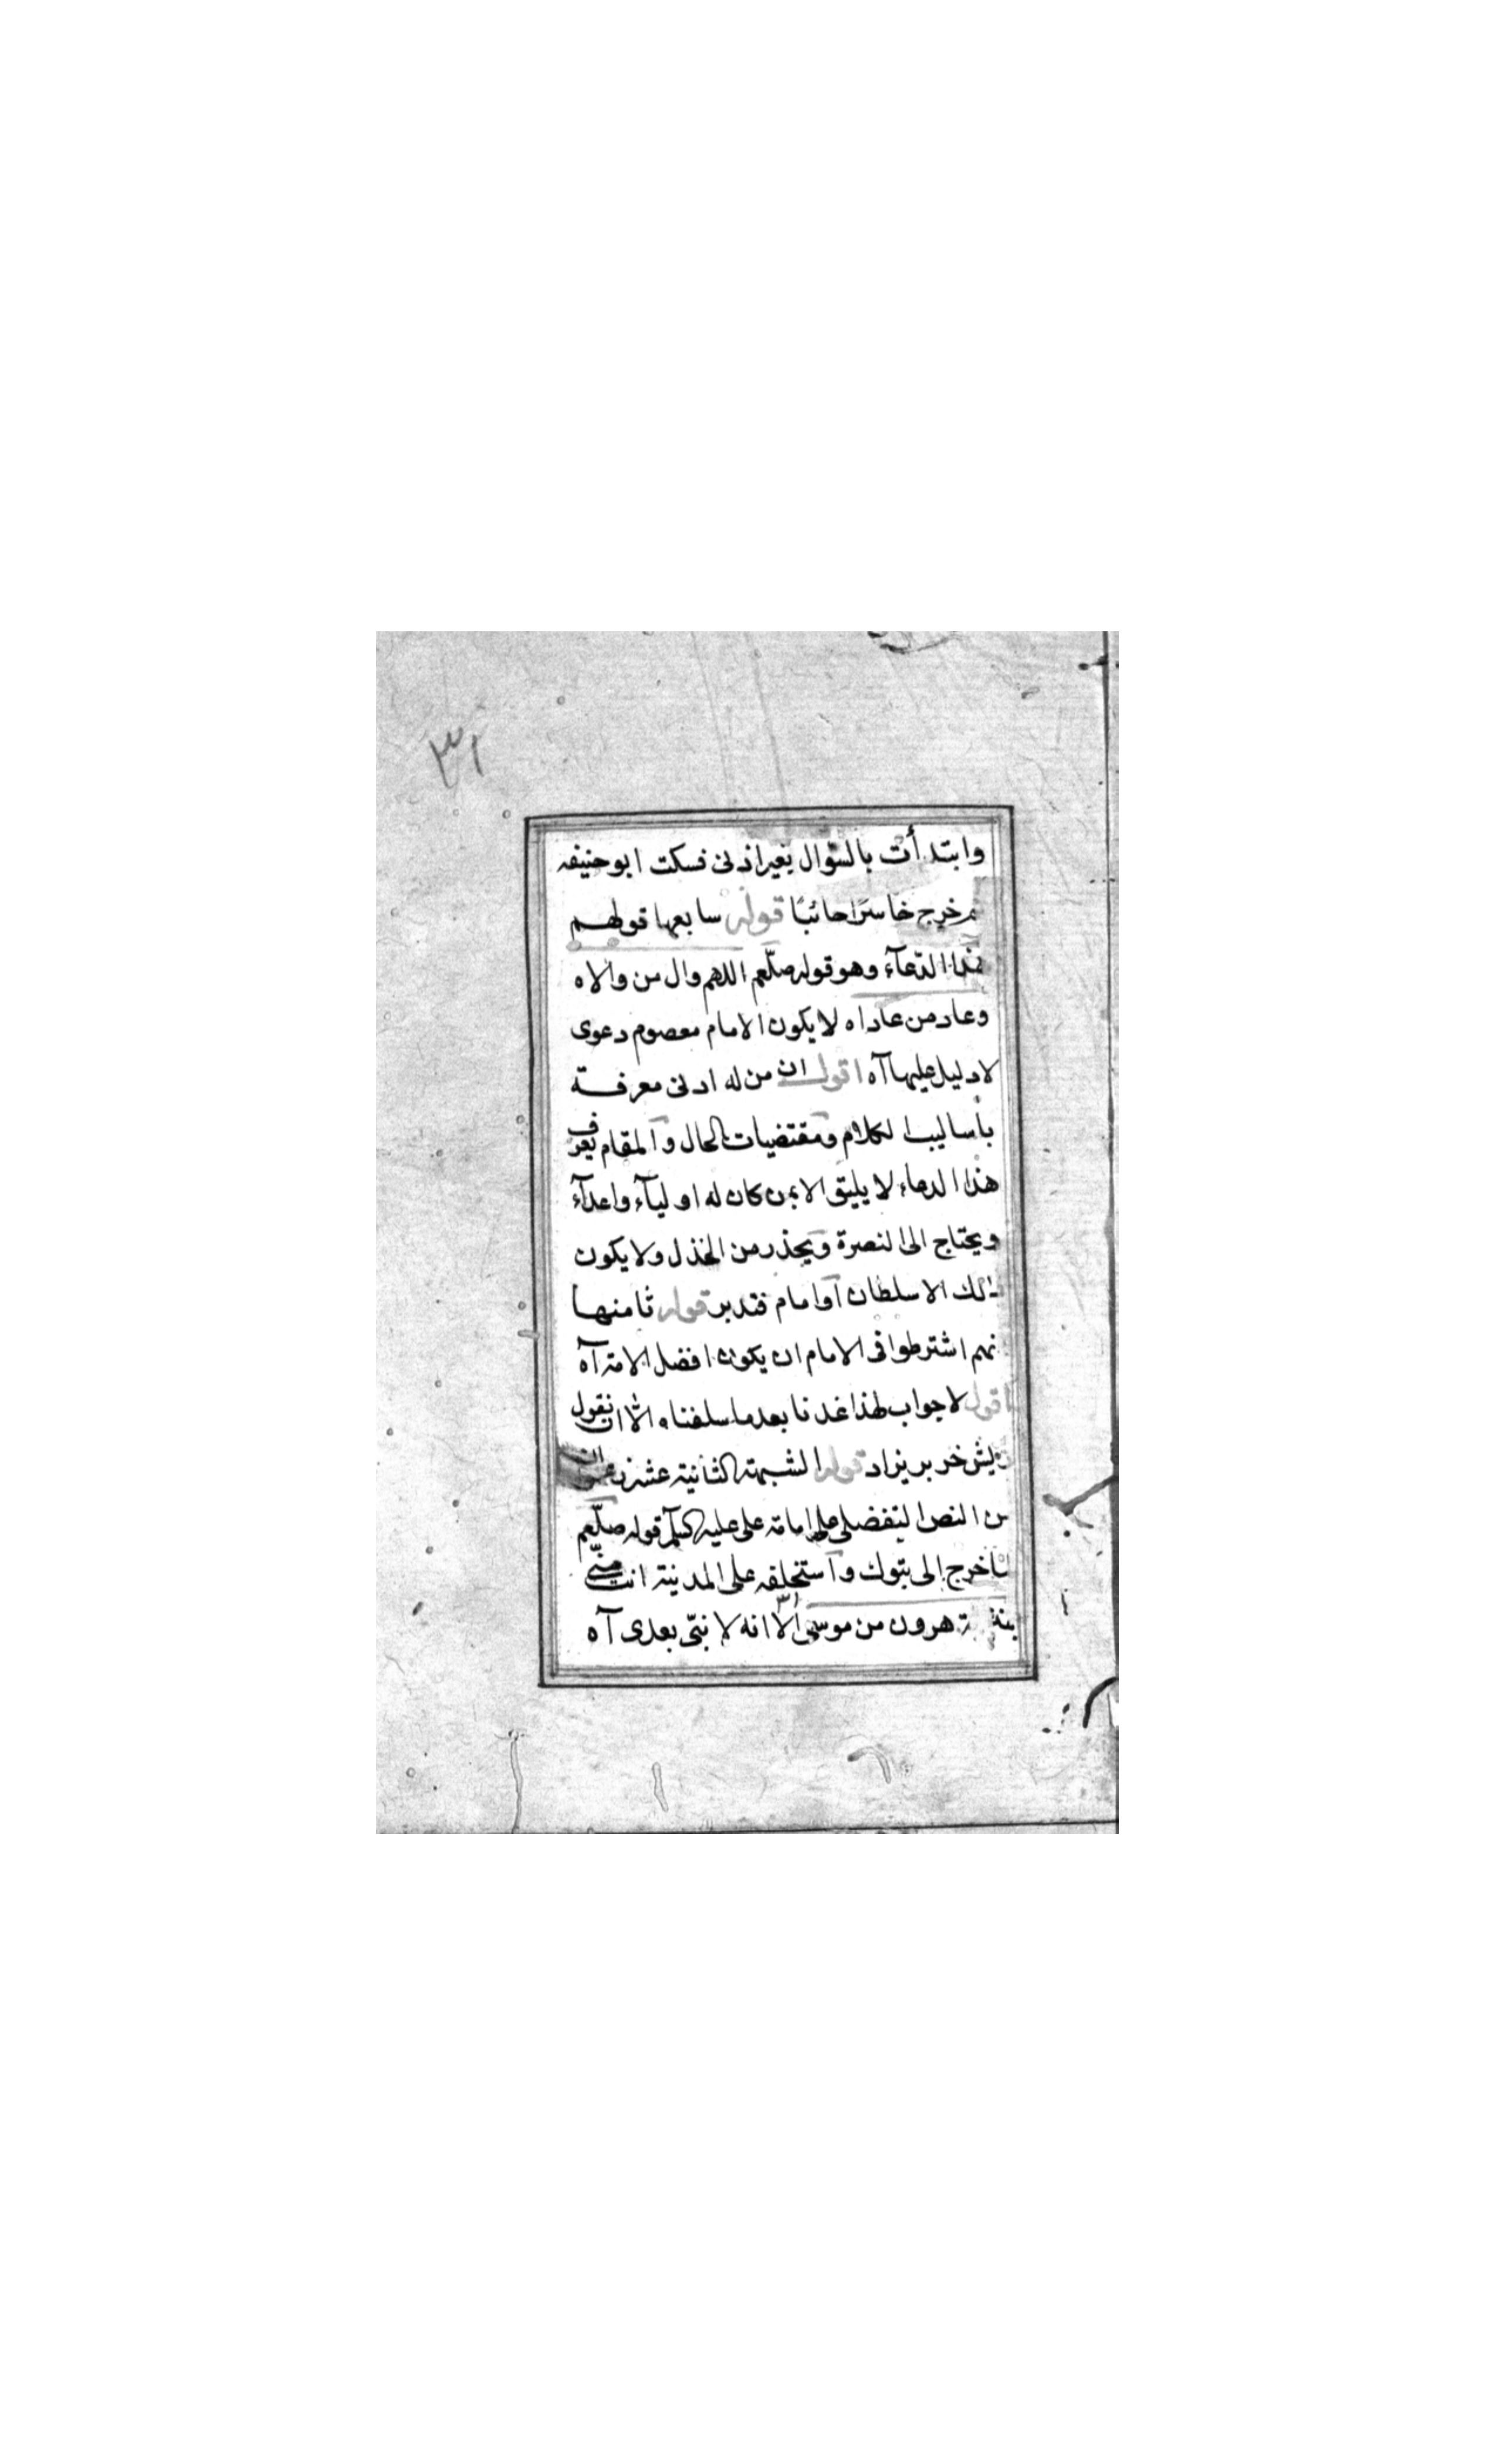 ٣١
وابتدأت بالسؤال بغير اذنى فسكت ابو حنيفه
ثم خرج خاسرا خائبا قوله سابعها قولهم
هذا الدعآء وهو قوله صلعم اللهم وال من والاه
وعاد من عاداه لا يكون الا مام معصوم دعوى
لا دليل عليها آه اقول ان من له ادنى معرفة
بأساليب الكلام ومقتضيات الحال والمقام يعرف
هذا الدعاء لا يليق الا بمن كان له اوليآء واعدآء
ويحتاج الى النصرة ويحذر من الخذل ولا يكون
ذلك الا سلطان او امام فتدبر قوله ثامنها
نهم اشترطوا فى الامام ان يكون افضل الامة آه
اقول لا جواب لهذا عندنا بعد ما سلفناه الا ان نقول
ريش خر برين اد قوله الشبهة الثانية عشر
من النص التفضلى على امامة على عليه قوله صلعم
لما خرج الى تبوك واستخلفه على المدينة انت منى
بمنزلة هرون من موسى الا انه لا نبى بعدى آه